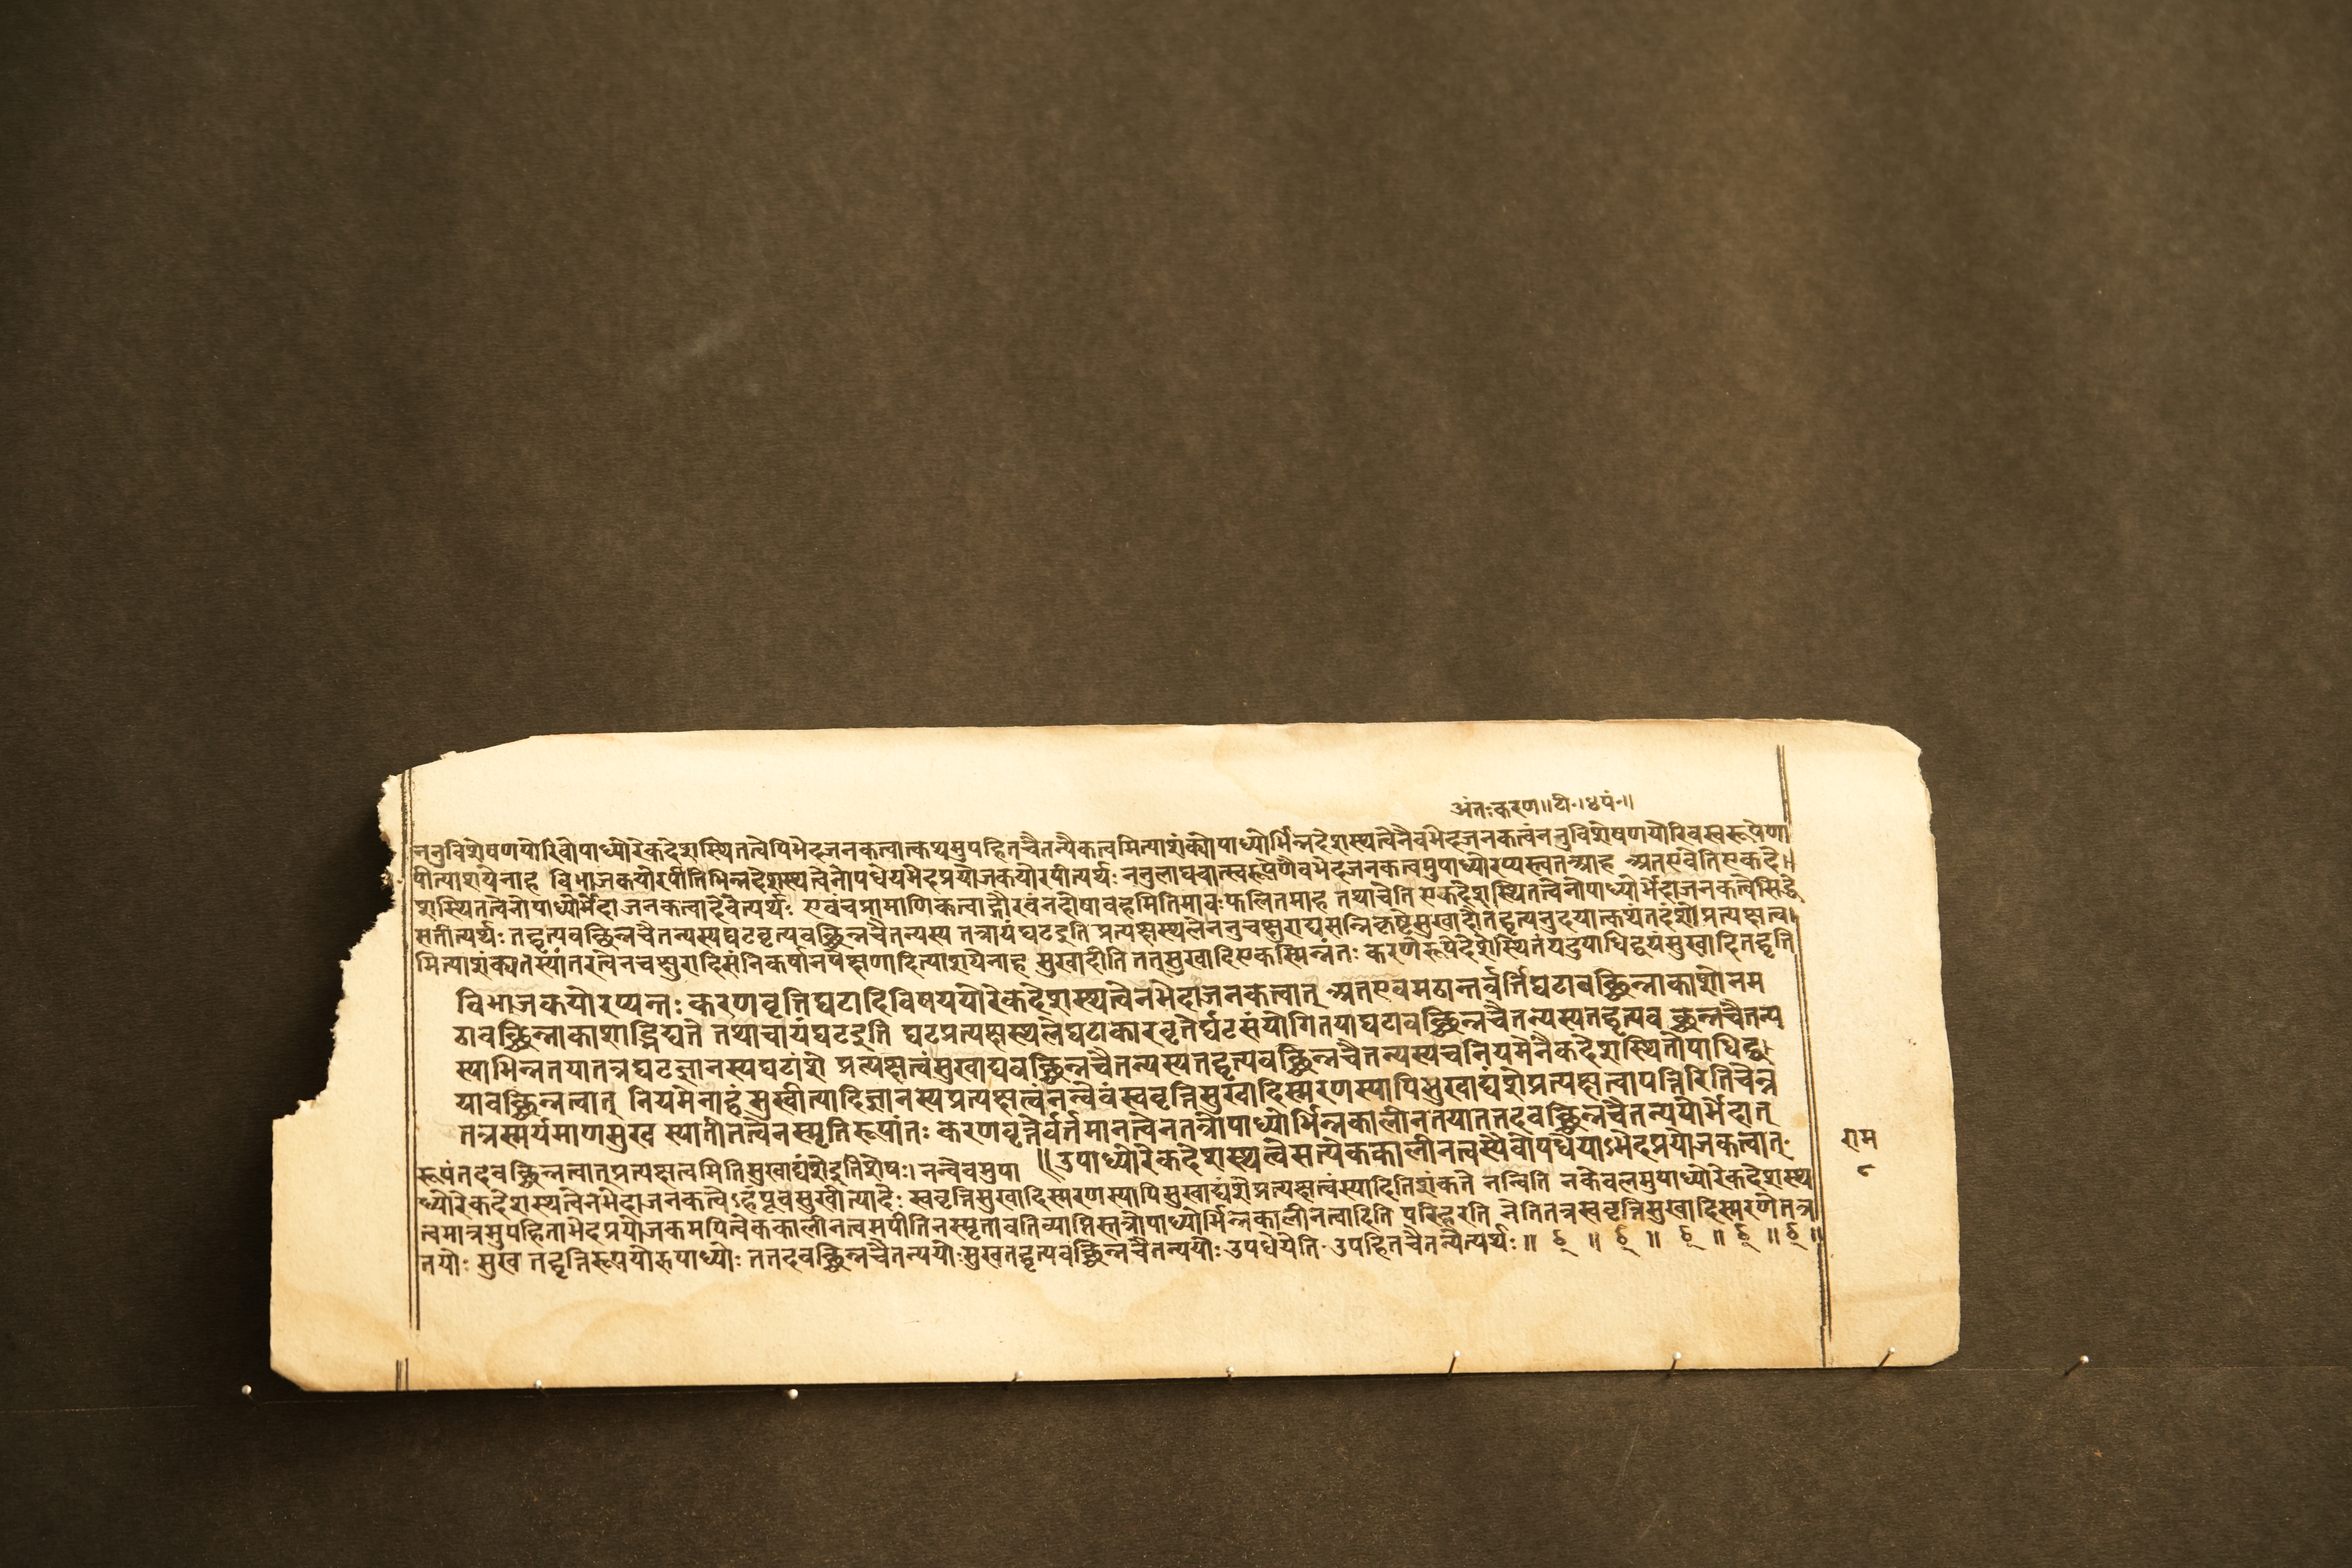 अंतःकरण॥टी॰।४पं॰॥
ननुविशेषणयोरिवोपाध्योरेकदेशस्थितत्वेपिभेदजनकत्वात्कथमुपहितचैतन्यैकत्वमित्याशंक्योपाध्योर्भिन्नदेशस्थत्वेनैवभेदजनकत्वंननुविशेषणयोरिवस्वरूपेणा
पीत्याशयेनाह विभाजकयोरपीतिभिन्नदेशस्थत्वेनोपधेयभेदप्रयोजकयोरपीत्यर्थः ननुलाघवात्स्वरूपेणैवभेदजनकत्वमुपाध्योरप्यस्त्वतआह अतएवेतिएकदे॥
शस्थितत्वेनोपाध्योर्भेदाजनकत्वादेवेत्यर्थः एवंचप्रामाणिकत्वाद्गौरवंनदोषावहमितिभावःफलितमाह तथाचेति एकदेशस्थितत्वेनोपाध्योर्भेदाजनकत्वेसिद्धे
सतीत्यर्थः तद्वृत्यवच्छिन्नचैतन्यस्यघटवृत्यवच्छिन्नचैतन्यस्य तत्रायंघटइति प्रत्यक्षस्थलेननुचक्षुराद्यसन्निकृष्टेसुखादौतद्वृत्यनुदयात्कथंतदंशेप्रत्यक्षत्व।
मित्याशंक्यतस्यांतरत्वेनचक्षुरादिसंनिकर्षानपेक्षणादित्याशयेनाह सुखादीति तत्सुखादिएकस्मिन्नंतः करणरूपेदेशेस्थितंयदुपाधिद्वयंसुखादितद्वृत्ति
विभाजकयोरप्यन्तः करणवृत्तिघटादिविषययोरेकदेशस्थत्वेनभेदाजनकत्वात् अतएवमठान्तर्वर्त्तिघटावच्छिन्नाकाशोनम
ठावच्छिन्नाकाशाद्भिद्यते तथाचायंघटइति घटप्रत्यक्षस्थलेघटाकारवृतेर्घटसंयोगितयाघटावच्छिन्नचैतन्यस्यतद्वृत्यव च्छिन्नचैतन्य
स्याभिन्नतयातत्रघटज्ञानस्यघटांशे प्रत्यक्षत्वंसुखाद्यवच्छिन्नचैतन्यस्यतद्वृत्यवच्छिन्नचैतन्यस्यचनियमेनैकदेशस्थितोपाधिद्व।
यावच्छिन्नत्वात् नियमेनाहंसुखीत्यादिज्ञानस्यप्रत्यक्षत्वंनन्वेवंस्ववृत्तिसुखादिस्मरणस्यापिसुखाद्यंशेप्रत्यक्षत्वापत्तिरितिचेन्न
तत्रस्मर्यमाणसुख स्यातीतत्वेनस्मृतिरूपांतः करणवृत्तेर्वर्तमानत्वेनतत्रोपाध्योर्भिन्नकालीनतयातत्तदवच्छिन्नचैतन्ययोर्भेदात्
॥उपाध्योरेकदेशस्थत्वेसत्येककालीनत्वस्यैवोपधेयाऽभेदप्रयोजकत्वात्ः
रूपंतदवच्छिन्नत्वात्प्रत्यक्षत्वमितिसुखाद्यंशेइतिशेषः। नन्वेवमुपा
ध्योरेकदेशस्थत्वेनभेदाजनकत्वेऽहंपूर्वसुखीत्यादेः स्ववृत्तिसुखादिस्मरणस्यापिसुखाद्यंशेप्रत्यक्षत्वंस्यादितिशंकते नन्विति नकेवलमुपाध्योरेकदेशस्थ
त्वमात्रमुपहिताभेदप्रयोजकमपित्वेककालीनत्वमपीतिनस्मृतावतिव्याप्तिस्तत्रोपाध्योर्भिन्नकालीनत्वादिति परिहरति नेतितत्रस्ववृत्तिसुखादिस्मरणेतत्र
तयोः सुख तद्वृत्तिरूपयोरुपाध्योः ततदवच्छिन्नचैतन्ययोःसुखतद्वृत्यवच्छिन्नचैतन्ययोः उपधेयेति उपहितचैतन्येत्यर्थः॥
राम
८